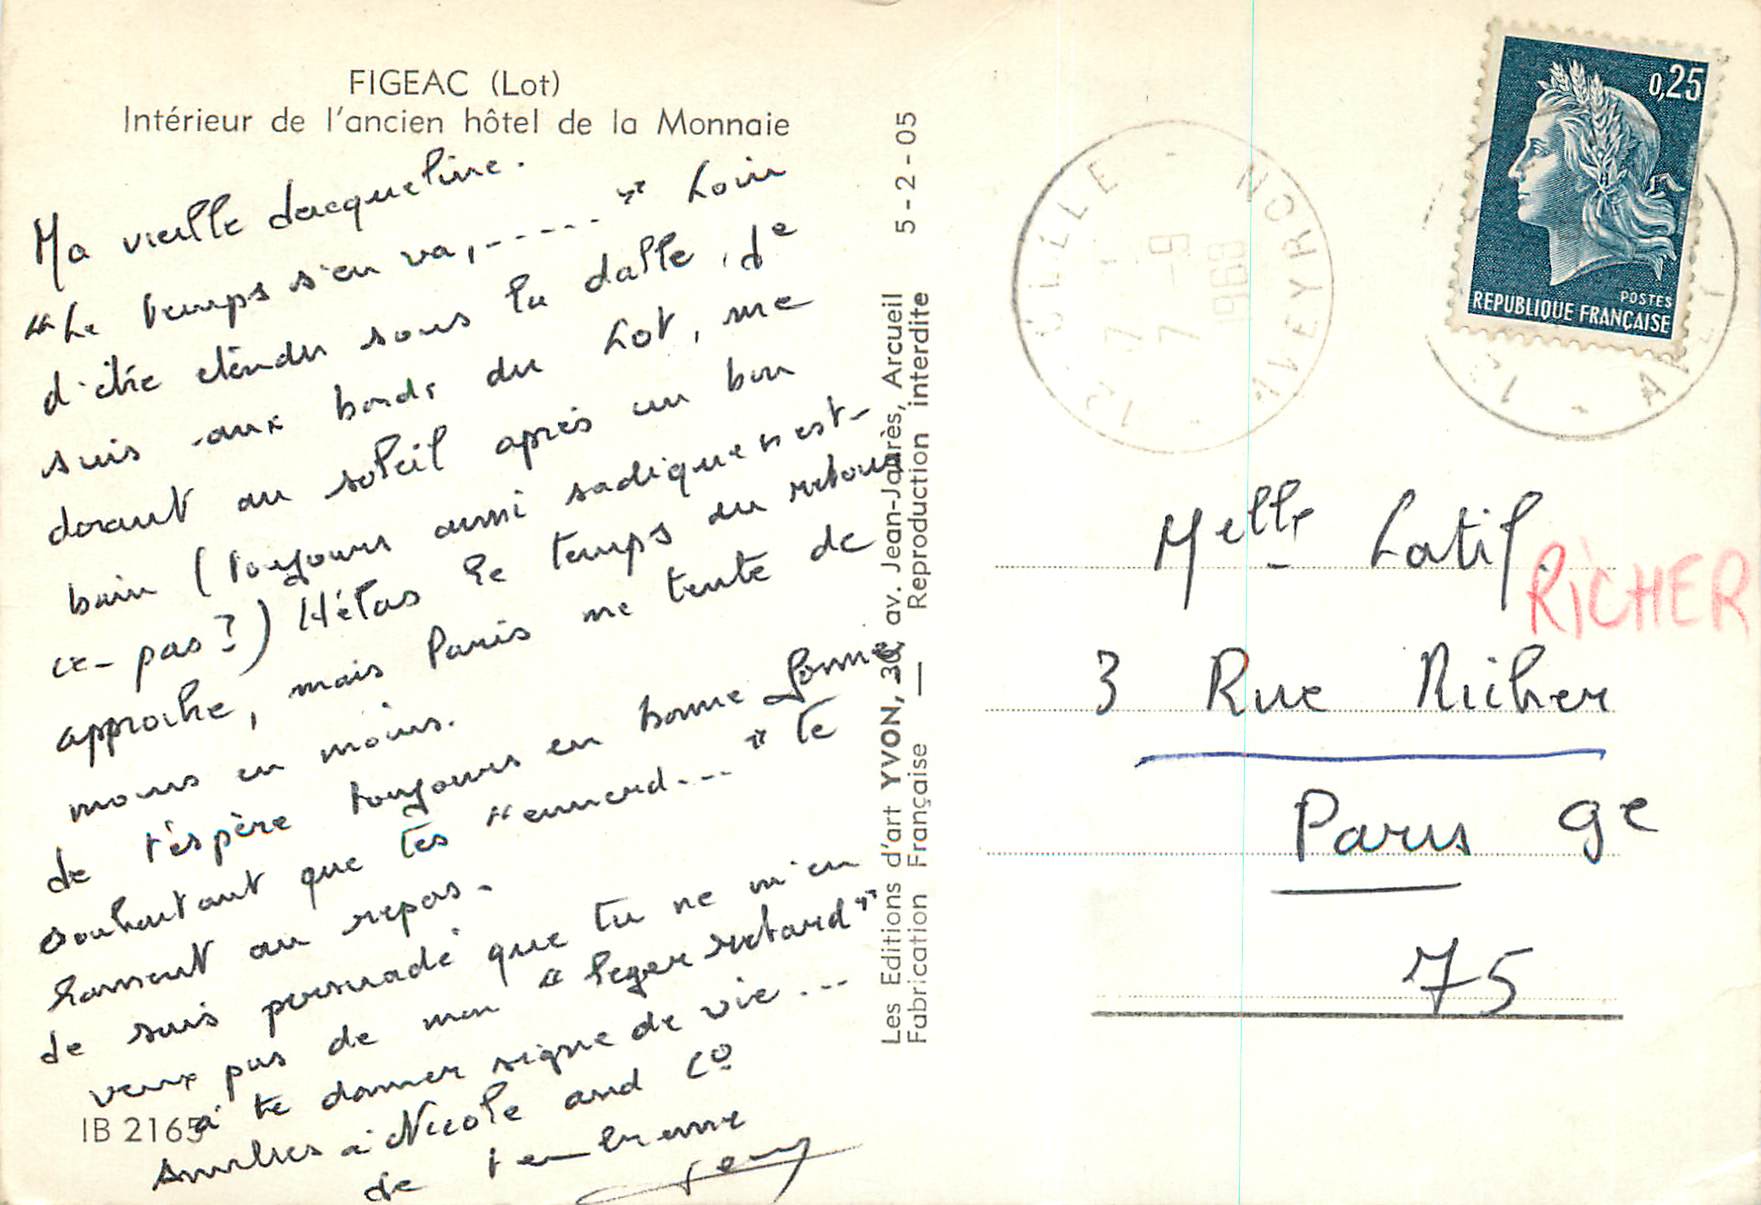 FIGEAC (Lot)
Intérieur de l'ancien hôtel de la Monnaie
Ma vieille Jacqueline.
"Le temps s'en va,-----" Loin
d'être étendu sous la dalle, je
suis aux bords du Lot, me
dorant au soleil après un bon
bain (toujours aussi sadique n'est-
ce-pas?) Hélas le temps du retour
approche, mais Paris me tente de
moins en moins.
Je t'espère toujours en bonne forme
souhaitant que tes "emmerd..." te
laissent au repos.
Je suis persuadé que tu ne m'en
veux pas de mon "leger retard"
à te donner signe de vie...
Amitiés à Nicole and Co
Je t'embrasse
IB 2165
5-2-05
Les Editions d'art YVON, 30, av. Jean-Jaurès, Arcueil
Fabrication Française — Reproduction interdite
12 - AVEYRON
7-9
7
1968
0,25
POSTES
REPUBLIQUE FRANÇAISE
Melle Latil
RICHER
3 Rue Richer
Paris 9e
75